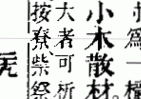 爲一
小木散材
大者可析
按尞柴祭